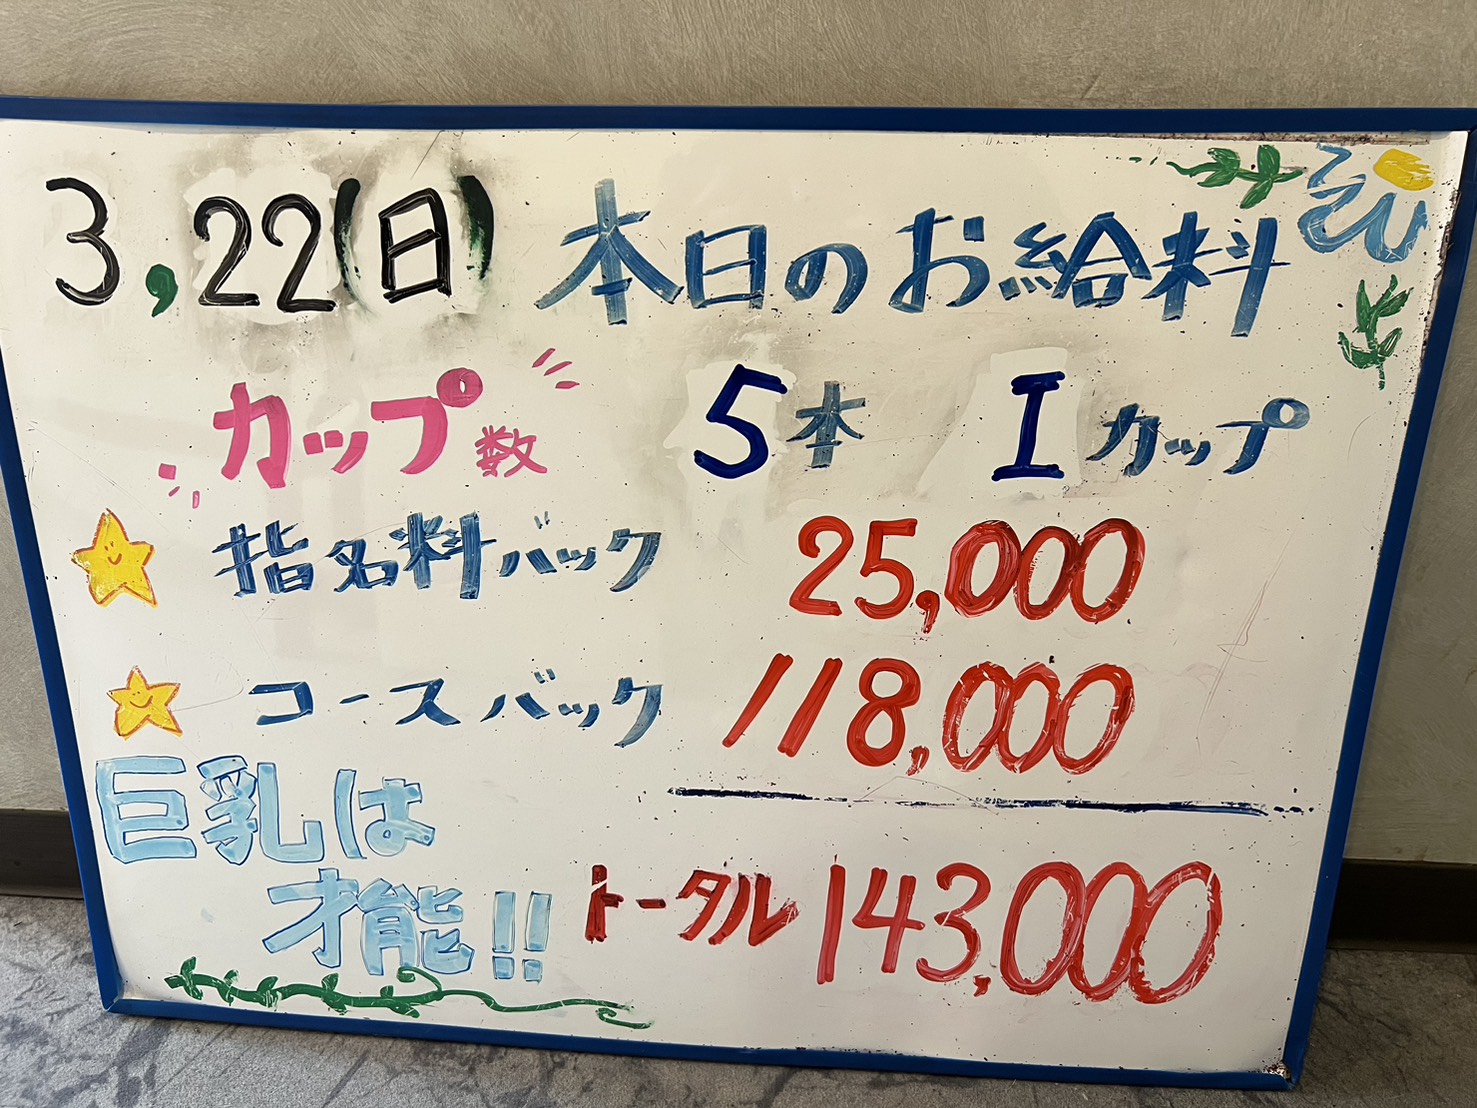 3,22(日) 本日のお給料
カップ数 5本 Iカップ
指名料バック 25,000
コースバック 118,000
巨乳は
才能!!
トータル 143,000